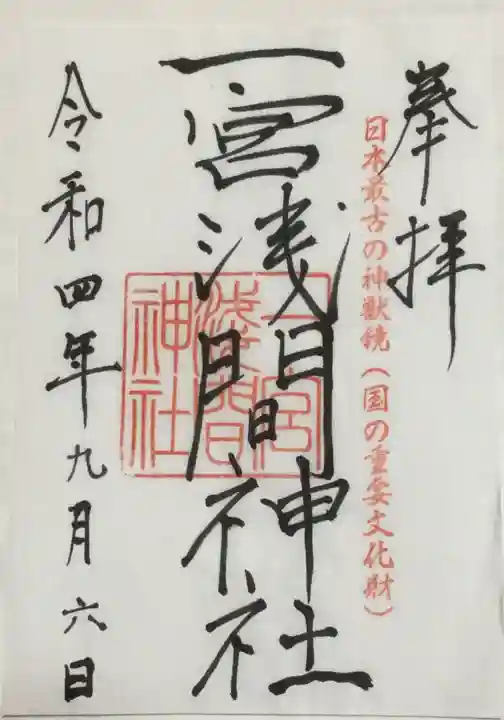 奉拝
日本最古の神獣鏡（国の重要文化財）
一宮浅間神社
一宮
浅間
神社
令和四年九月六日